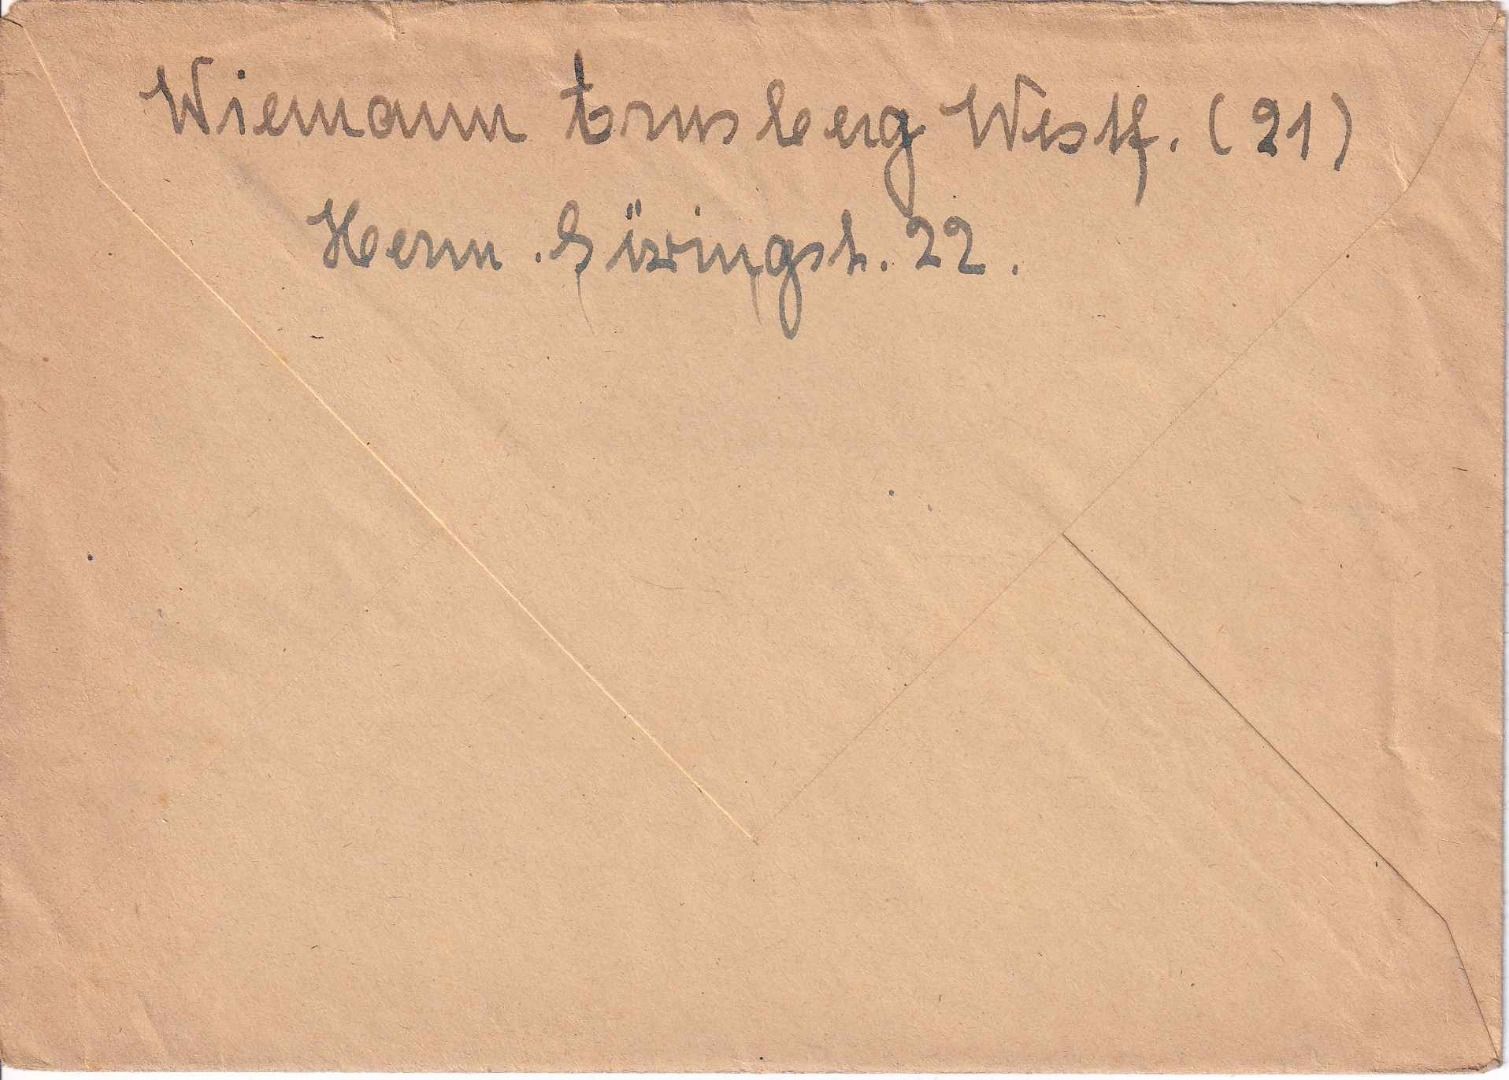 Wiemann Arnsberg Westf. (21)
Herm. Göringstr. 22.